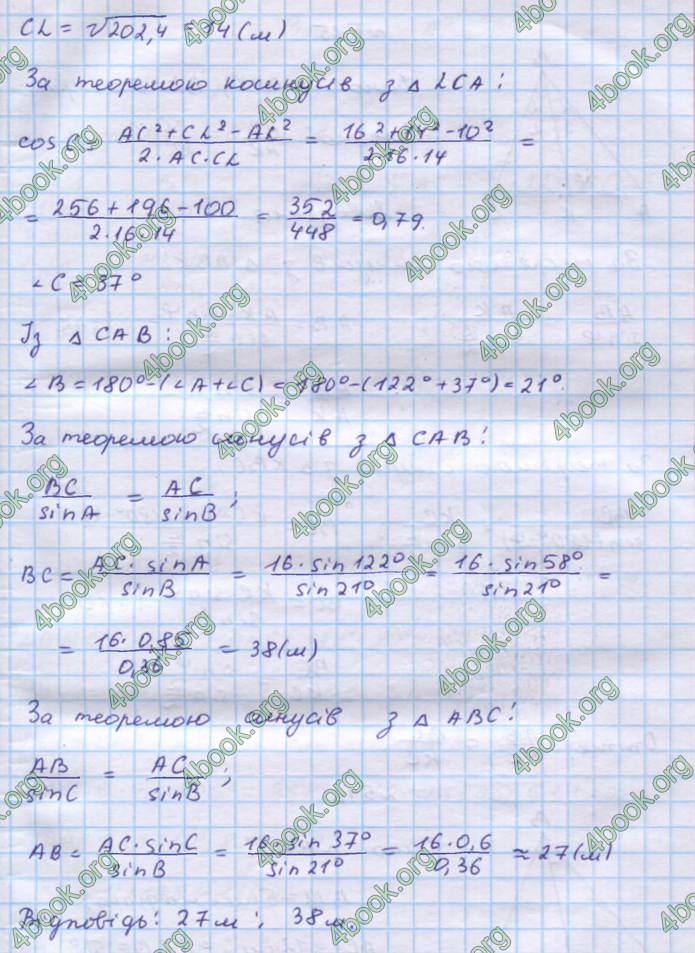 CL = √202,4 = 14 (м)
За теоремою косинусів з △ LCA:
cos C = (AC² + CL² - AL²) / (2 · AC · CL) = (16² + 14² - 10²) / (2 · 16 · 14) =
= (256 + 196 - 100) / (2 · 16 · 14) = 352 / 448 = 0,79.
∠C = 37°
Із △ CAB:
∠B = 180° - (∠A + ∠C) = 180° - (122° + 37°) = 21°.
За теоремою синусів з △ CAB:
BC / sin A = AC / sin B;
BC = AC · sin A / sin B = 16 · sin 122° / sin 21° = 16 · sin 58° / sin 21° =
= 16 · 0,85 / 0,36 = 38 (м)
За теоремою синусів з △ ABC:
AB / sin C = AC / sin B;
AB = AC · sin C / sin B = 16 · sin 37° / sin 21° = 16 · 0,6 / 0,36 ≈ 27 (м)
Відповідь: 27 м; 38 м.
4book.org